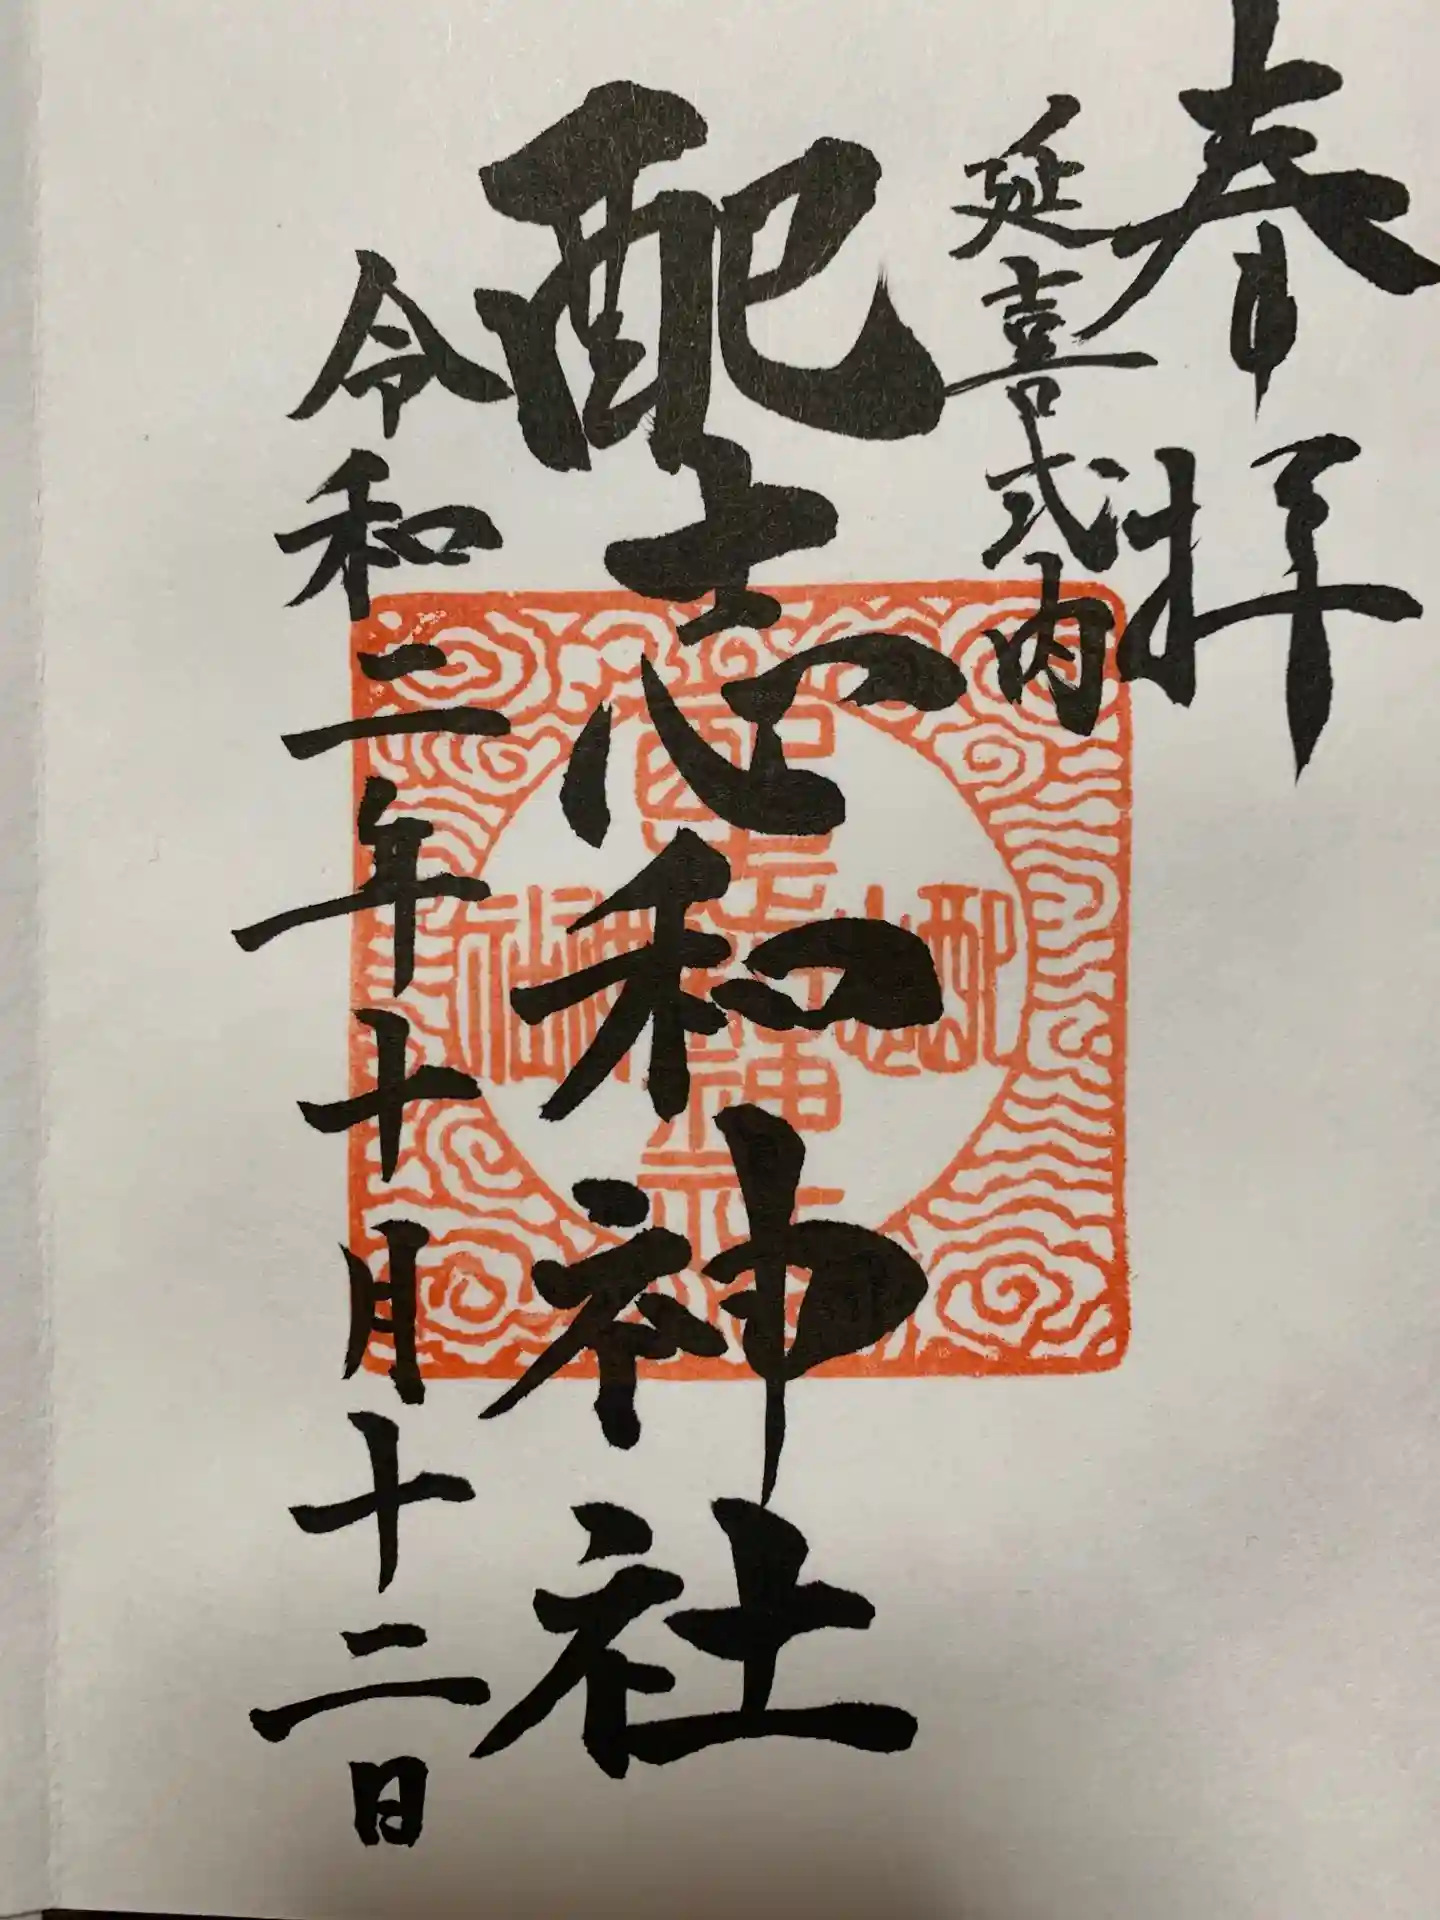 奉拝
延喜式内
配志和神社
配志和神社
令和二年十月十二日